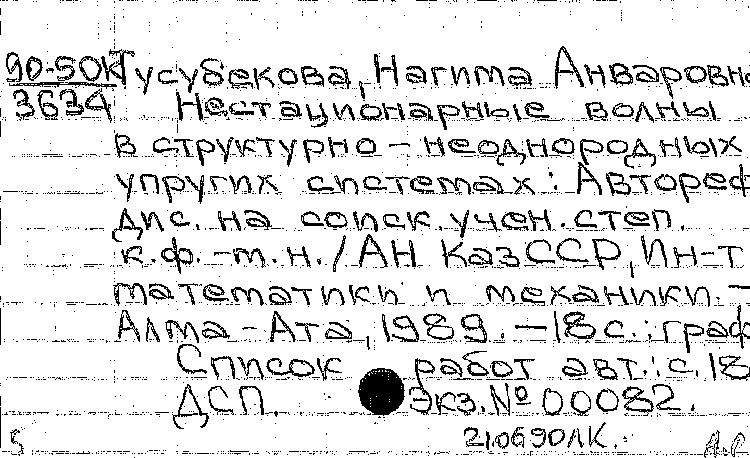 90-50К Тусубекова, Нагима Анваровна
3634 Нестационарные волны
в структурно-неоднородных
упругих системах: Автореф
дис. на соиск. учен. степ.
к.ф.-т.н. / АН КазССР, Ин-т
математики и механики. -
Алма-Ата, 1989. - 18 с.: граф
Список работ авт.: с. 18
ДСП. Экз. № 00082.
5 21.06.90ЛК. А.С